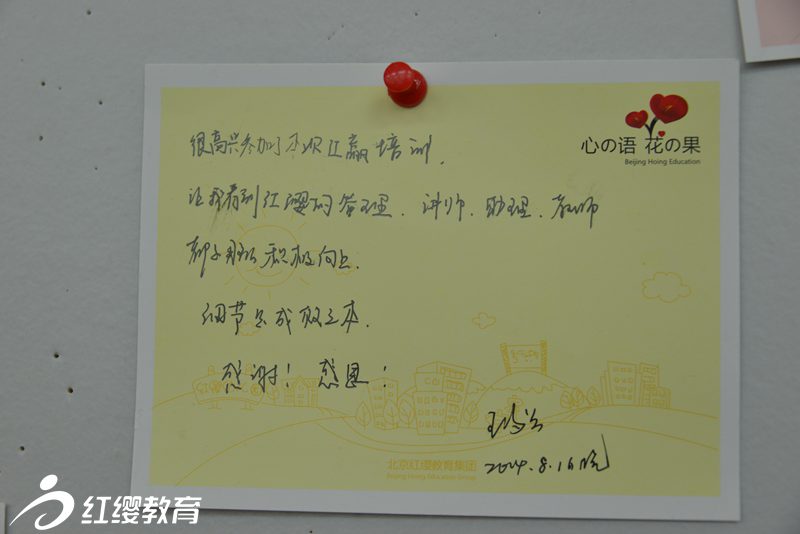 心の语 花の果
Beijing Hoing Education
很高兴参加了本次红赢培训，
让我看到红缨的管理、讲师、助理、教师
都那么积极向上．
细节是成败之本．
感谢！ 感恩！
2014.8.16晚
北京红缨教育集团
Beijing Hoing Education Group
红缨教育